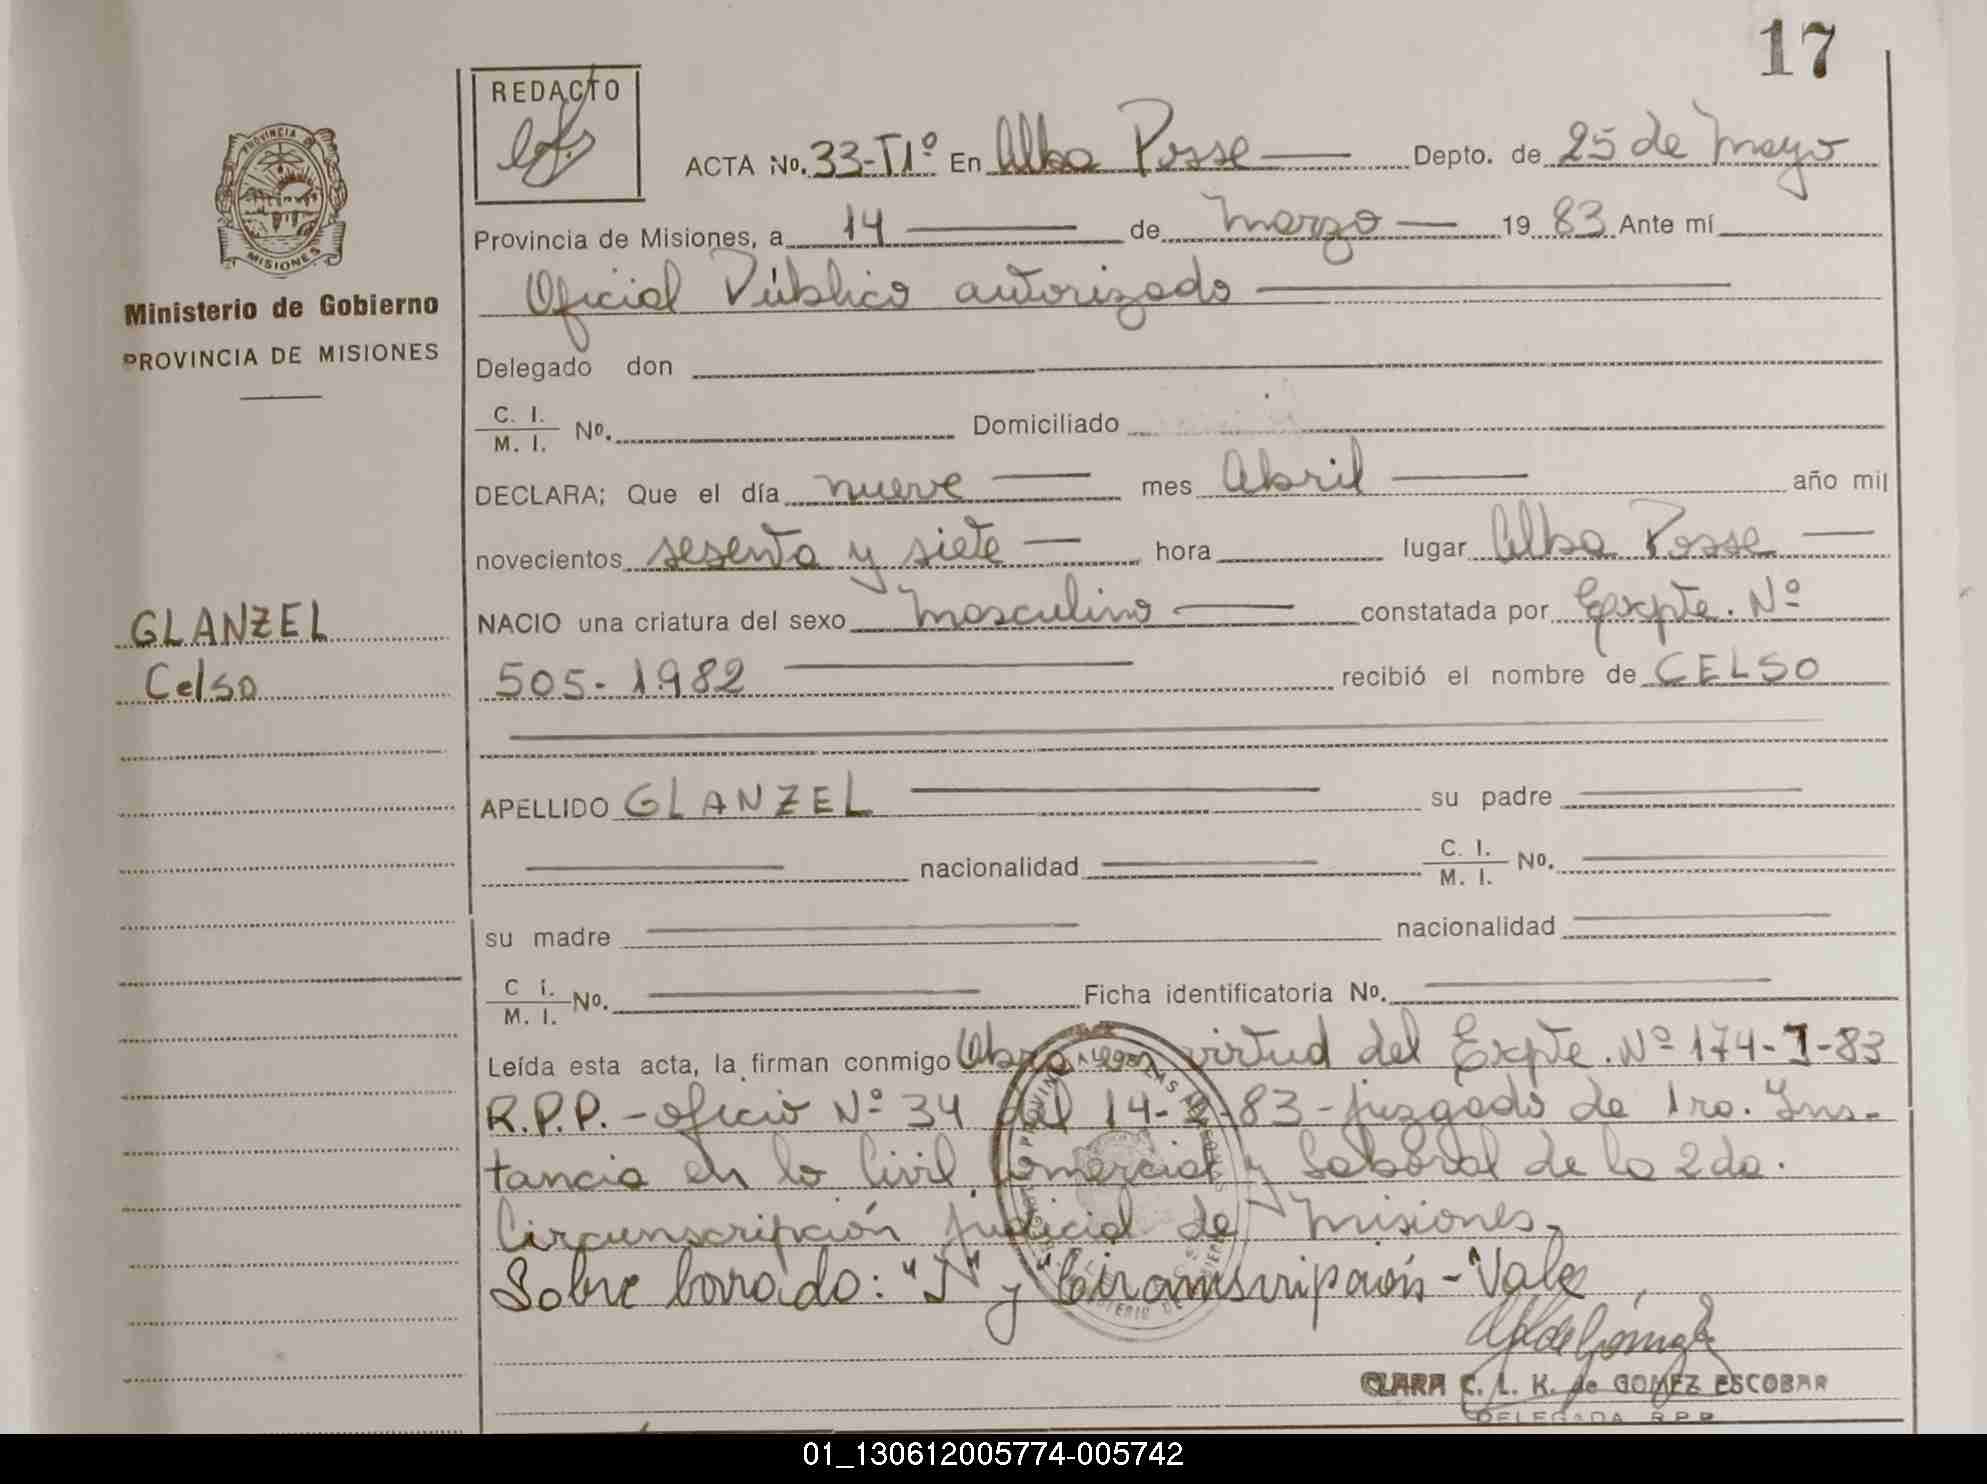 17
REDACTO
ACTA No. 33-T1º En Alba Posse Depto. de 25 de Mayo
Provincia de Misiones, a 14 de Marzo 19 83 Ante mí
Oficial Público autorizado
PROVINCIA
MISIONES
Ministerio de Gobierno
PROVINCIA DE MISIONES
Delegado don
C. I.
M. I. No. Domiciliado
DECLARA; Que el día nueve mes Abril año mil
novecientos sesenta y siete hora lugar Alba Posse
GLANZEL
Celso
NACIO una criatura del sexo Masculino constatada por Expte. Nº
505-1982 recibió el nombre de CELSO
APELLIDO GLANZEL su padre
nacionalidad C. I.
M. I. No.
su madre nacionalidad
C i.
M. I. No. Ficha identificatoria No.
Leída esta acta, la firman conmigo virtud del Expte. Nº 174-J-83
R.P.P. - oficio Nº 34 del 14- -83 - juzgado de 1ro. Ins-
tancia en lo Civil, Comercial y Laboral de la 2da.
Circunscripción judicial de Misiones,
Sobre borrado: "J" y "Circunscripción - Vale
CLARA C. L. K. de GOMEZ ESCOBAR
DELEGADA R.P.P.
01_130612005774-005742